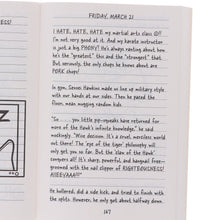 FRIDAY, MARCH 21
I HATE, HATE, HATE my martial arts class ☹!!
I'm not very good at it. And my karate instructor
is just a big PHONY! He's always ranting about how
he's the "greatest" this and the "strongest" that.
But seriously, the only chops he knows about are
PORK chops!
In gym, Sensei Hawkins made us line up military style
with our hands at our sides. Then he paced the
floor, mean mugging random kids.
"So . . . you little pip-squeaks have returned for
more of the Hawk's infinite knowledge," he said
mockingly. "Wise decision. It's a cruel, merciless world
out there! The 'eye of the tiger' philosophy will
only get you so far. But the 'claw of the Hawk'
conquers all! It's sharp, powerful, and hangnail free—
groomed with the nail clipper of RIGHTEOUSNESS!
HIEEYAAA!!"
He hollered, did a side kick, and tried to finish with
the splits. However, he only got about halfway down.
167